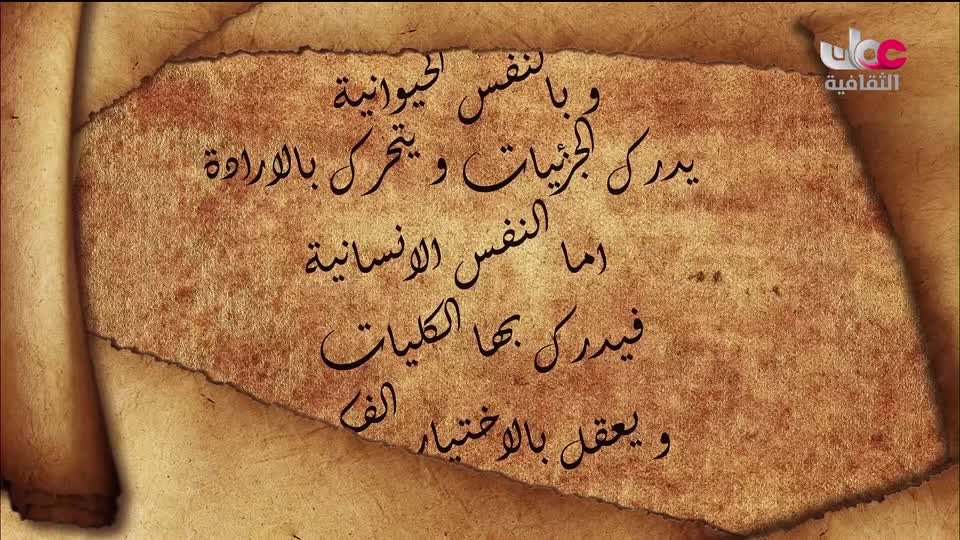 عمان
الثقافية
وبالنفس الحيوانية
يدرك الجزئيات ويتحرك بالارادة
اما النفس الانسانية
فيدرك بها الكليات
ويعقل بالاختيار الفك